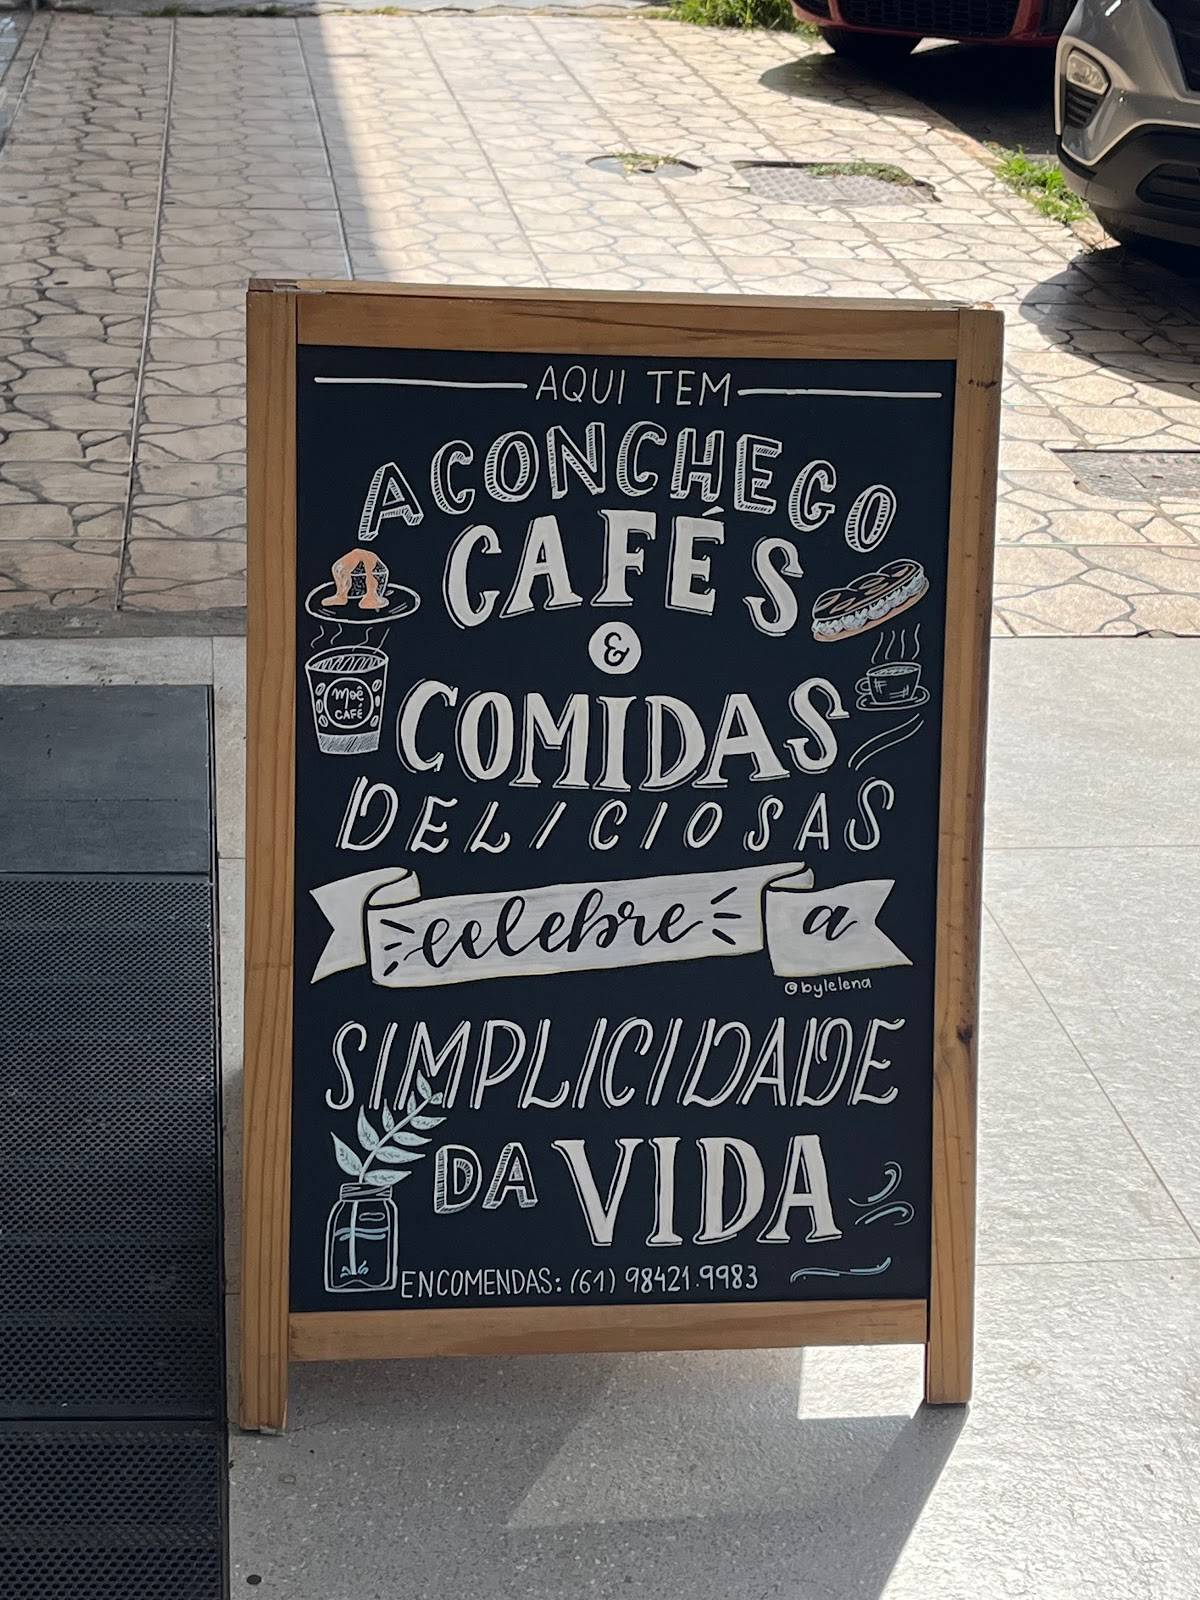 AQUI TEM
ACONCHEGO
CAFÉS
&
Moê
CAFÉ
COMIDAS
DELICIOSAS
celebre a
@bylelena
SIMPLICIDADE
DA VIDA
ENCOMENDAS: (61) 98421.9983